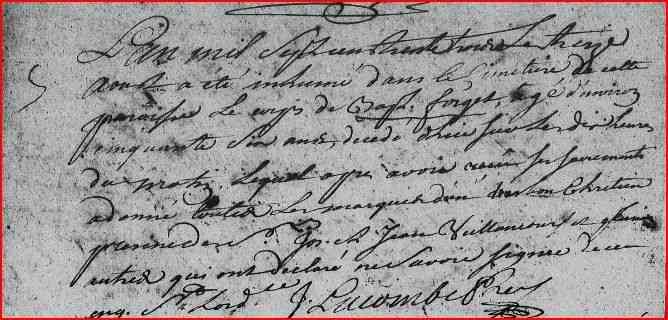 L'an mil sept cens trente trois le treze
aoust a été inhumé dans le Cimetiere de cette
paroisse le corps de Bapt. forget, agé d'environ
cinquante six ans, decedé hier sur les dix heures
du matin lequel apres avoir receu ses sacrements
a donné toutes les marques d'un bon Chrétien
presence de Sr. Jos. et Jean Villeneuve et plusieurs
autres qui ont declaré ne savoir signer de ce
enq. St. Lord. ce J. Lacombe Ptre